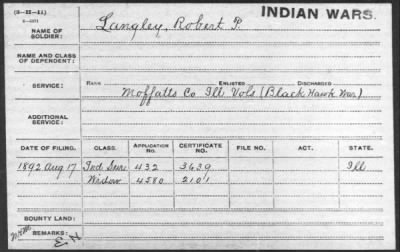 (3-25-11)
6-4071
INDIAN WARS.
NAME OF SOLDIER: Langley, Robert P.
NAME AND CLASS OF DEPENDENT:
SERVICE: RANK ENLISTED DISCHARGED
Moffatts Co Ill Vols (Black Hawk War)
ADDITIONAL SERVICE:
DATE OF FILING. CLASS. APPLICATION NO. CERTIFICATE NO. FILE NO. ACT. STATE.
1892 Aug 17 Ind Sur 432 3639 Ill
Widow 4580 2101
BOUNTY LAND:
REMARKS:
E.N